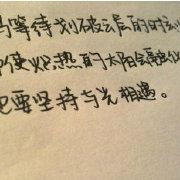 等待划破云层的时刻
即使炽热的太阳会融化
也要坚持与光相遇。